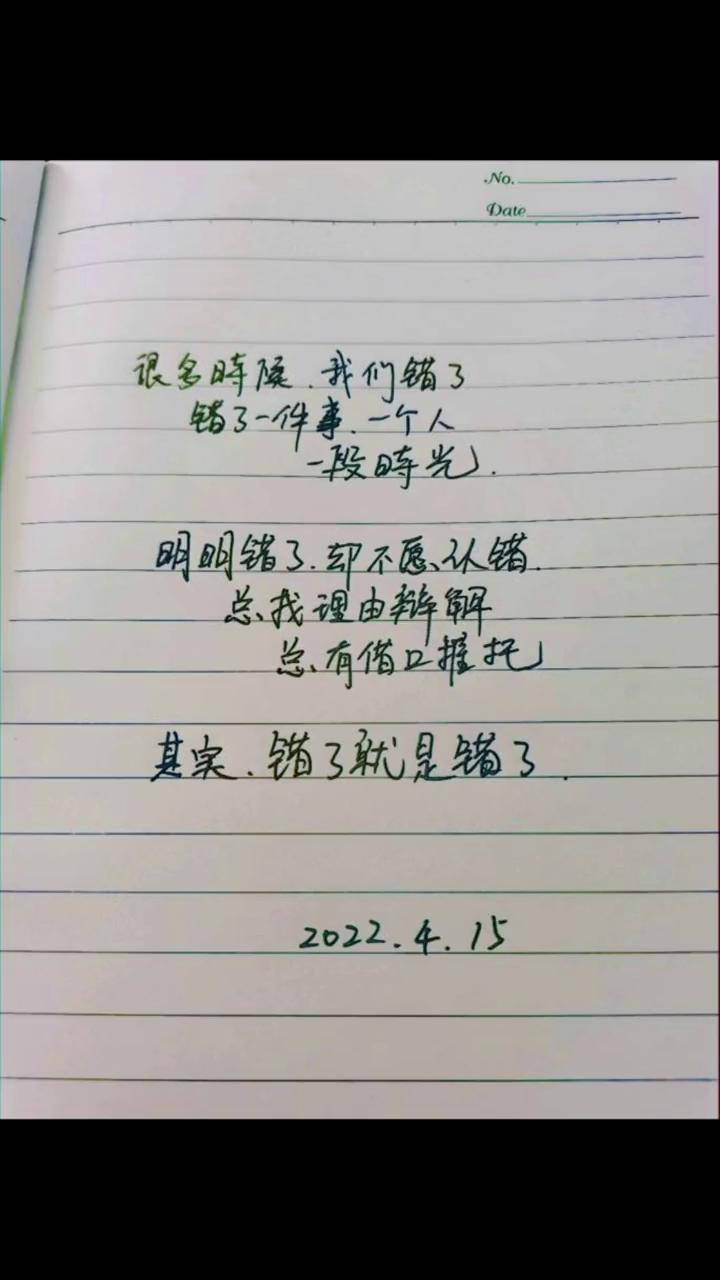 No.
Date
很多時候.我们错了
错了一件事.一个人
一段時光.
明明错了.却不愿认错.
总找理由辩解
总有借口推托
其实.错了就是错了.
2022.4.15